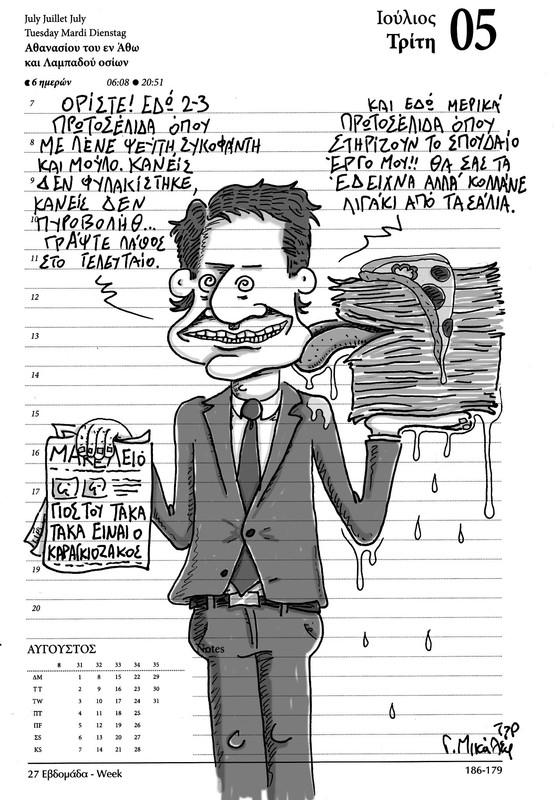 July Juillet July
Tuesday Mardi Dienstag
Αθανασίου του εν Άθω
και Λαμπαδού οσίων
6 ημερών 06:08 ● 20:51
Ιούλιος
Τρίτη
05
7
8
9
10
11
12
13
14
15
16
17
19
20
ΟΡΙΣΤΕ! ΕΔΩ 2-3
ΠΡΩΤΟΣΕΛΙΔΑ ΟΠΟΥ
ΜΕ ΛΕΝΕ ΨΕΥΤΗ, ΣΥΚΟΦΑΝΤΗ
ΚΑΙ ΜΟΥΛΟ. ΚΑΝΕΙΣ
ΔΕΝ ΦΥΛΑΚΙΣΤΗΚΕ,
ΚΑΝΕΙΣ ΔΕΝ
ΠΥΡΟΒΟΛΗΘ...
ΓΡΑΨΤΕ ΛΑΘΟΣ
ΣΤΟ ΤΕΛΕΥΤΑΙΟ.
ΚΑΙ ΕΔΩ ΜΕΡΙΚΑ
ΠΡΩΤΟΣΕΛΙΔΑ ΟΠΟΥ
ΣΤΗΡΙΖΟΥΝ ΤΟ ΣΠΟΥΔΑΙΟ
ΈΡΓΟ ΜΟΥ!! ΘΑ ΣΑΣ ΤΑ
ΈΔΕΙΧΝΑ ΑΛΛΑ ΚΟΛΛΑΝΕ
ΛΙΓΑΚΙ ΑΠΟ ΤΑ ΣΑΛΙΑ.
ΜΑΚΕΛΕΙΟ
ΓΙΟΣ ΤΟΥ ΤΑΚΑ
ΤΑΚΑ ΕΙΝΑΙ Ο
ΚΑΡΑΓΚΙΟΖΑΚΟΣ
ΑΥΓΟΥΣΤΟΣ
8 31 32 33 34 35
ΔΜ 1 8 15 22 29
ΤΤ 2 9 16 23 30
TW 3 10 17 24 31
ΠΤ 4 11 18 25
ΠF 5 12 19 26
ΣS 6 13 20 27
KS 7 14 21 28
Notes
27 Εβδομάδα - Week
186-179
Γ. Μικάλεφ